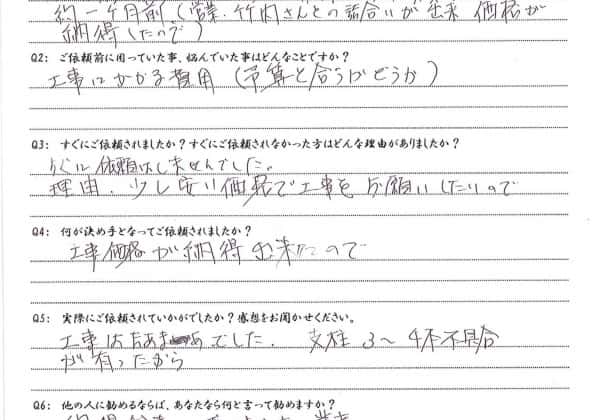 約一ヶ月前(営業.竹内さんとの話合いが出来 価格が
納得したので)
Q2: ご依頼前に困っていた事、悩んでいた事はどんなことですか?
工事にかかる費用(予算と合うかどうか)
Q3: すぐにご依頼されましたか?すぐにご依頼されなかった方はどんな理由がありましたか?
すぐに依頼はしませんでした。
理由.少し安い価格で工事をお願いしたいので
Q4: 何が決め手となってご依頼されましたか?
工事価格が納得出来たので
Q5: 実際にご依頼されていかがでしたか?感想をお聞かせください。
工事はまあまあでした. 支柱3〜4本不具合
が有ったから
Q6: 他の人に勧めるならば、あなたなら何と言って勧めますか?